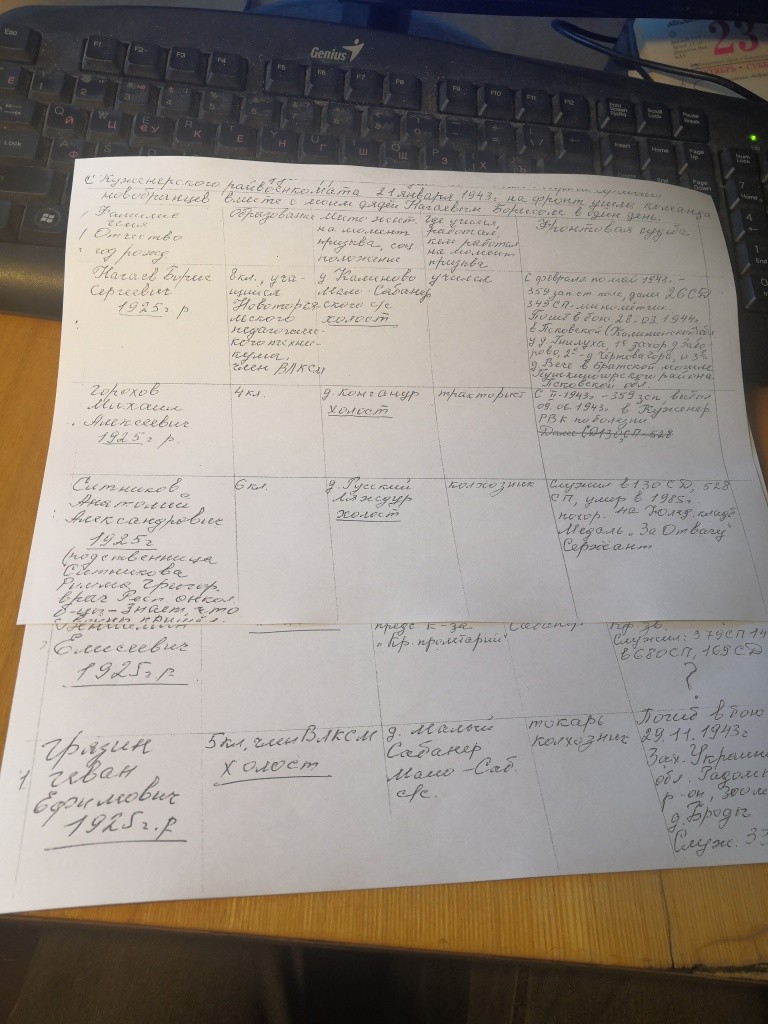 Genius
23
С Куженерского райвоенкомата 21 января 1943 г. на фронт ушли команда
новобранцев вместе с моим дядей Нагаевым Борисом в один день.
Фамилия
Имя
Отчество
год рожд
Образование
Место жит.
на момент
призыва, соц
положение
Где учился,
работал,
кем работал
на момент
призыва
Фронтовая судьба
Нагаев Борис
Сергеевич
1925 г р
8 кл., уча-
щийся
Новоторъя
льского
педагогиче-
ского техни-
кума,
член ВЛКСМ
д Калиново
Мало-Сабанер
ского с/с
холост
учился
С февраля по май 1943г. –
359 зап.ст. полк, далее 26 СД
349 СП - минометчик
Погиб в бою 28.03.1944г.
в Псковской (Калининской обл
у д. Гнилуха, 1е захор д. Забо-
рово, 2е - д Чертова гора, и 3е
д. Вече в братской могиле
Пушкиногорского района
Псковской обл.
Горохов
Михаил
Алексеевич
1925 г р
4 кл.
д. Конганур
холост
тракторист
С II-1943г - 359 зсп, выбыл
09.06.1943г. в Куженер.
РВК по болезни
Далее 130 СП - 528
Ситников
Анатолий
Александрович
1925г
(родственница
Ситникова
Римма Григор.
врач Респ онкол.
б-цы - знает, что
6 кл.
д. Русский
Ляждур
холост
колхозник
Служил в 130 СД, 528
СП, умер в 1985г
похор. на
Медаль „За Отвагу"
Сержант
Елисеевич
1925 г.р
пред к-за
„Кр. пролтарий"
Служил: 379 СП 14
в 680 СП, 169 СД
?
Грязин
Иван
Ефимович
1925 г. р
5 кл, член ВЛКСМ
холост
д. Малый
Сабанер
Мало-Саб.
с/с.
токарь
колхозник
Погиб в бою
29.11.1943г
Зап. Украина
обл.
р-он,
д. Броды
Служ. 33